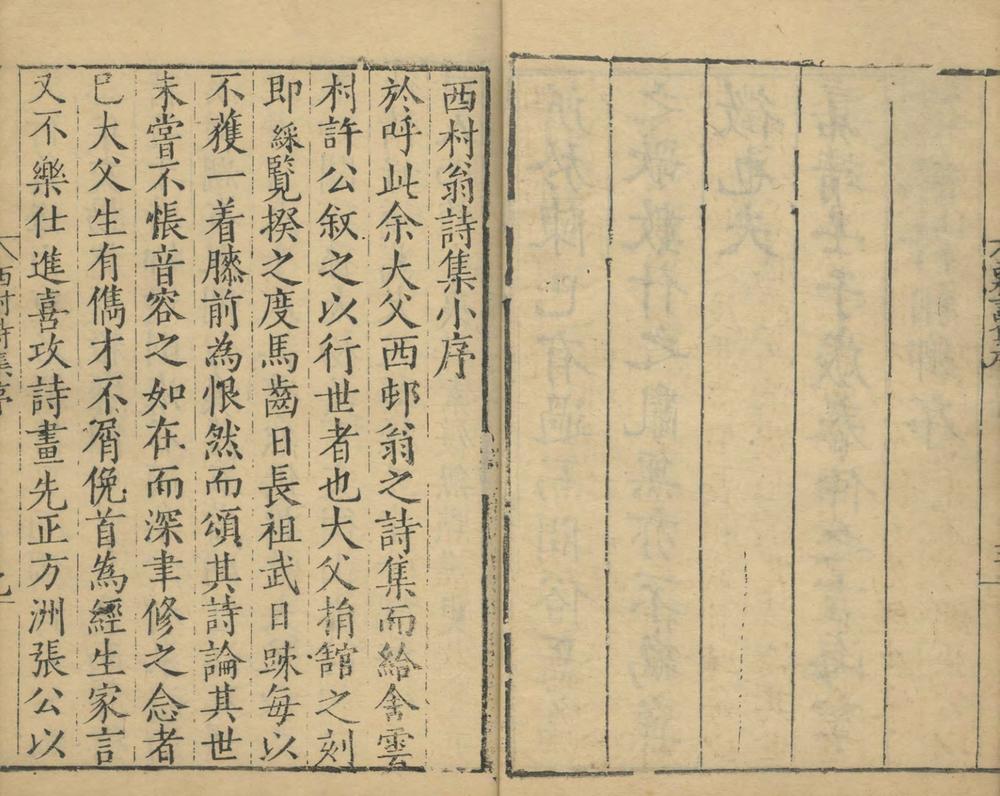 西村翁詩集小序
於呼此余大父西邨翁之詩集而給舍雲
村許公叙之以行世者也大父捐舘之刻
即綵覽揆之度馬齒日長祖武日踈每以
不獲一着膝前為恨然而頌其詩論其世
未嘗不悵音容之如在而深聿修之念者
巳大父生有儁才不屑俛首為經生家言
又不樂仕進喜攻詩畫先正方洲張公以
西村詩集序